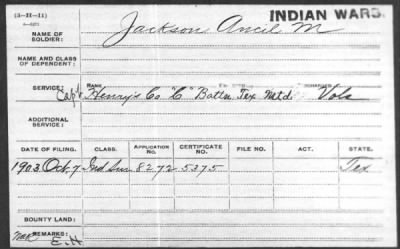 (3-H-11)
INDIAN WARS.
NAME OF SOLDIER: Jackson Ancil M
NAME AND CLASS OF DEPENDENT:
SERVICE: RANK Capt. Henry's Co "C" Battn Tex Mtd Vols
ADDITIONAL SERVICE:
DATE OF FILING. CLASS. APPLICATION NO. CERTIFICATE NO. FILE NO. ACT. STATE.
1903 Oct. 7 Ind Sur 8272 5375 Tex
BOUNTY LAND:
REMARKS: E.H